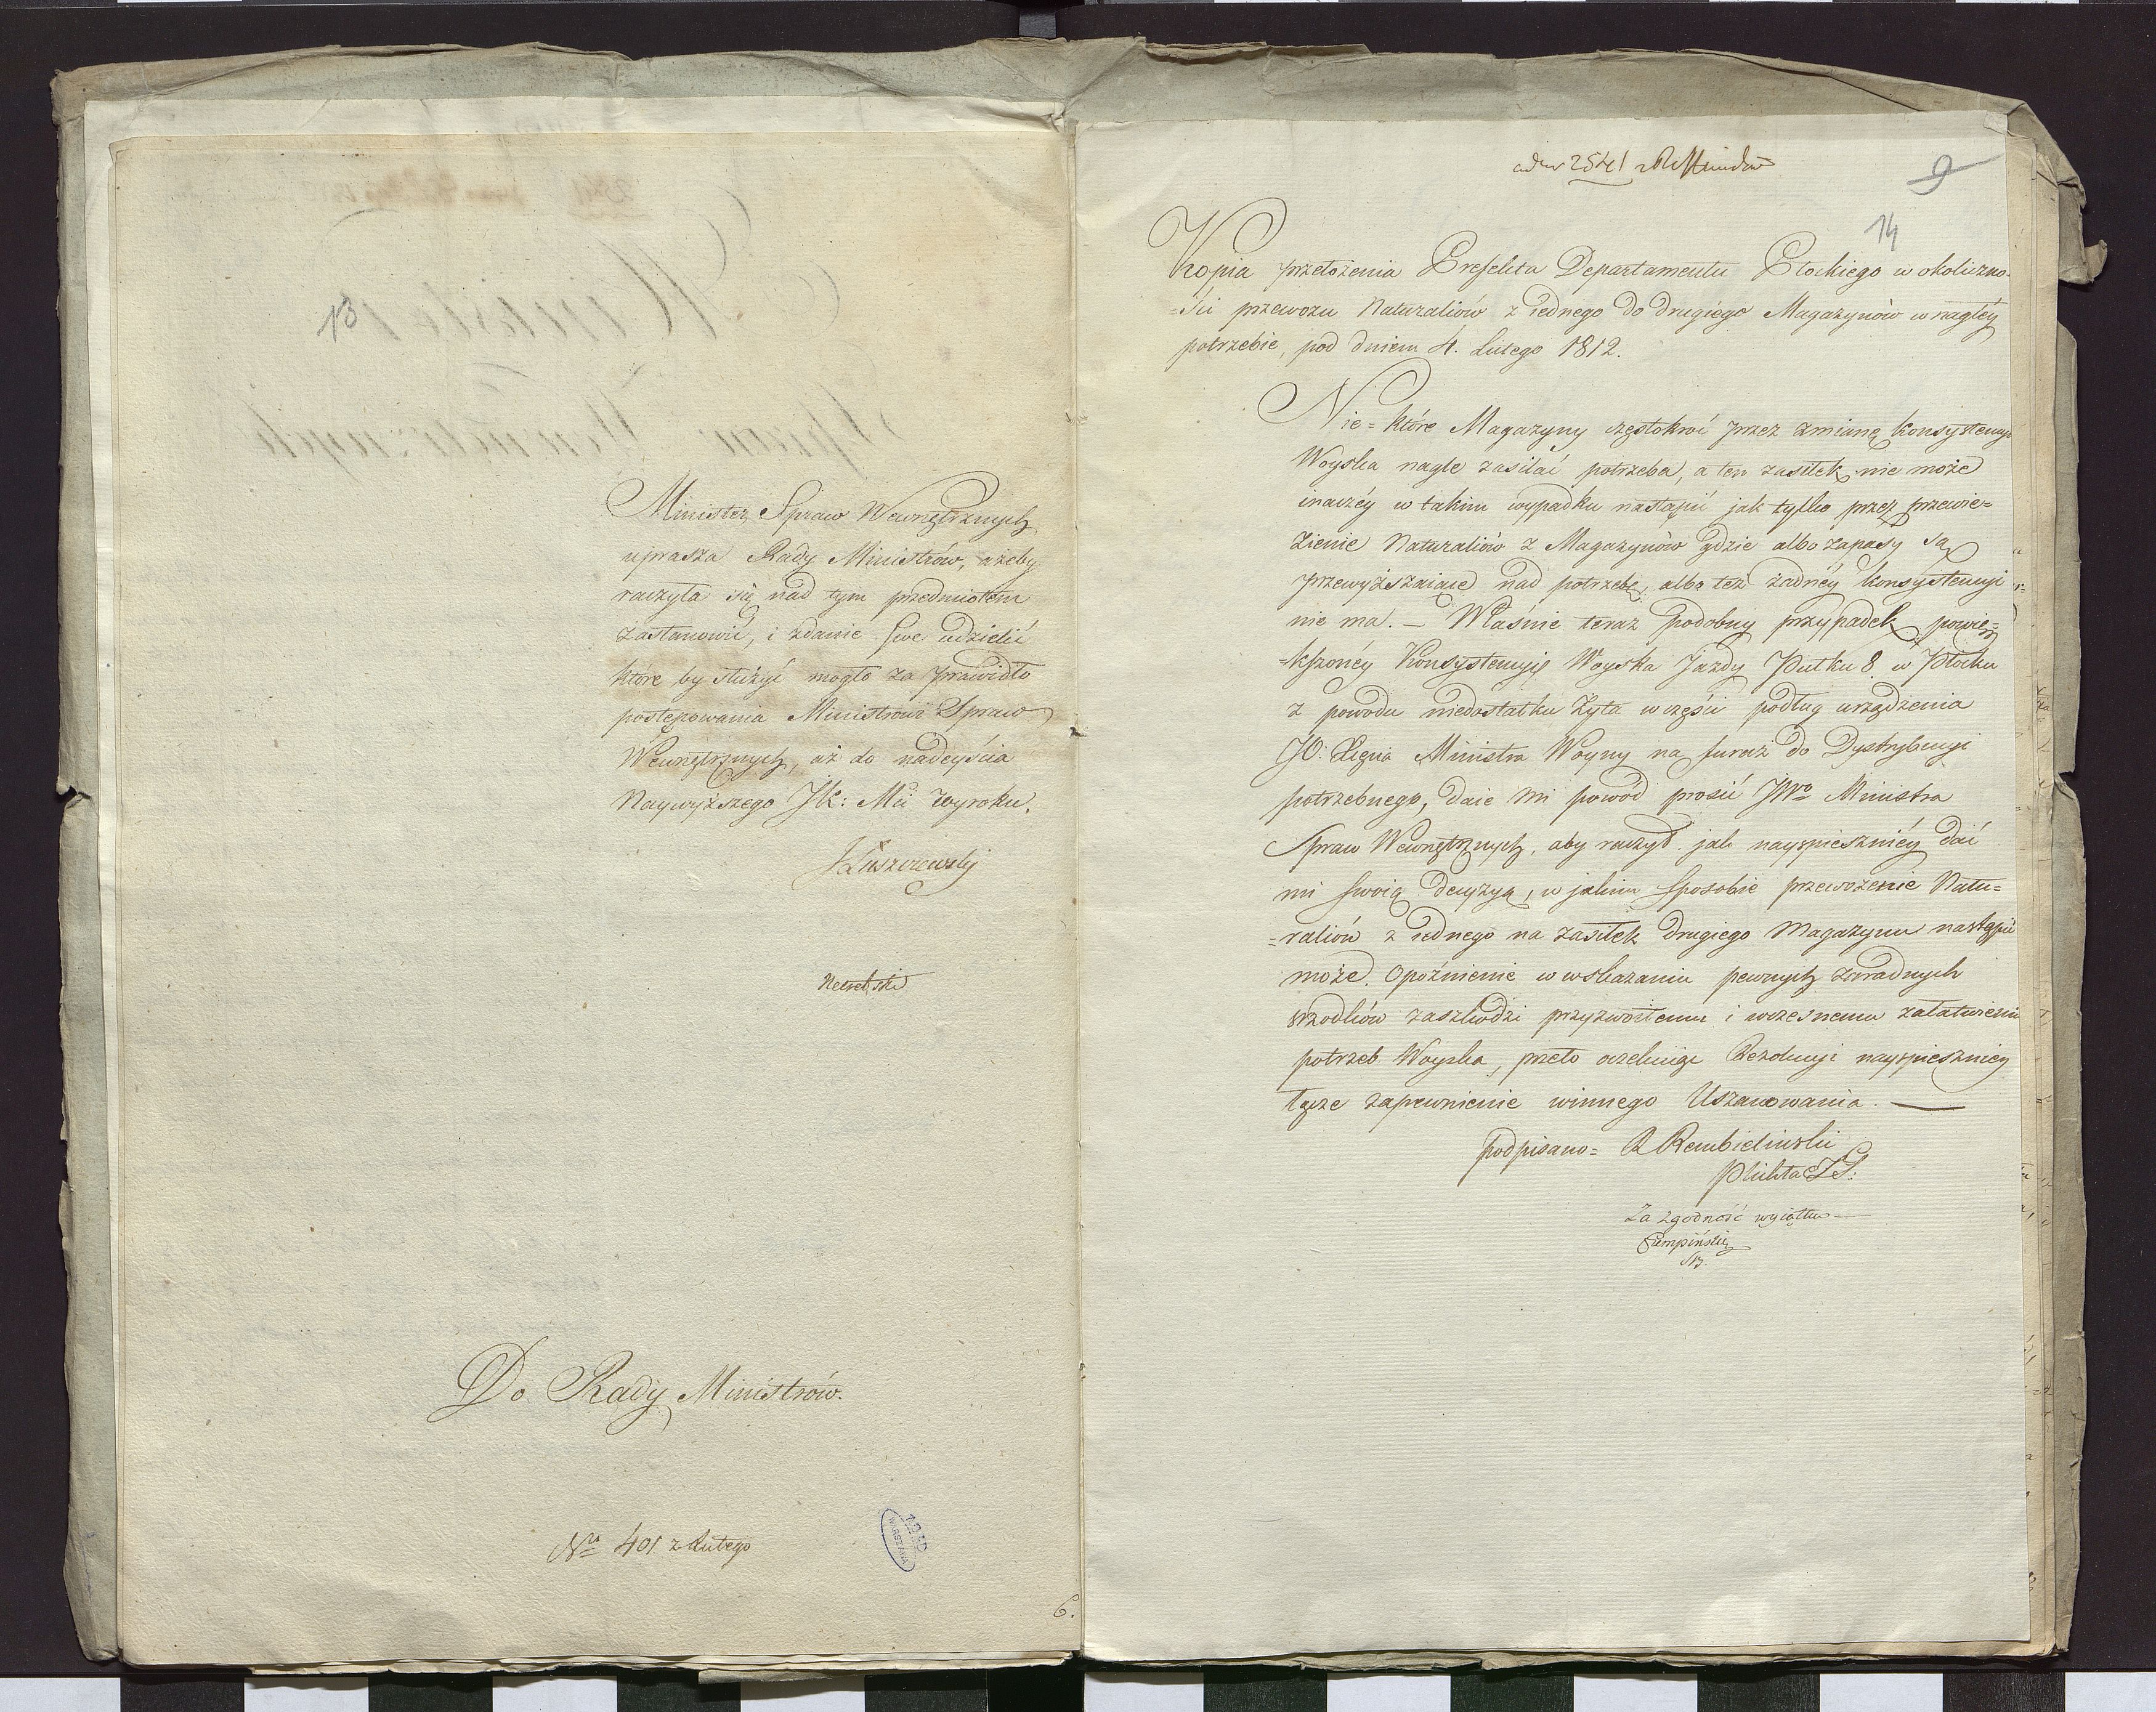 13
Minister Spraw Wewnętrznych
uprasza Rady Ministrów, ażeby
raczyła się nad tym przedmiotem
zastanowić, i zdanie swe udzielić
które by służyć mogło za prawidło
postępowania Ministrowi Spraw
Wewnętrznych, aż do nadeyścia
Naywyższego JK: Mci wyroku.
JŁuszczewskj
Do Rady Ministrów.
Nro 401 z Lutego
WARSZAWA
6.
ad Nr 2541
9
14
Kopia przełożenia Prefekta Departamentu Płockiego w okoliczno-
=ści przewozu Naturaliów z iednego do drugiego Magazynów w nagłéy
potrzebie, pod dniem 4. Lutego 1812.
Nie=które Magazyny częstokroć przez zmianę Konsystencyi
Woyska nagle zasilać potrzeba, a ten zasiłek nie może
inaczéy w takim wypadku nastąpić jak tylko przez przewie=
zienie Naturaliów z Magazynów gdzie albo zapasy są
przewyższaiące nad potrzebę, albo też żadnéy Konsystencyi
nie ma. — Właśnie teraz podobny przypadek powię=
=kszonéy Konsystencyię Woyska Jazdy Pułku 8. w Płocku
z powodu niedostatku Żyta w części podług urządzenia
JO: Xięcia Ministra Woyny na furaż do Dystrybucyi
potrzebnego, daie mi powód prosić JWo Ministra
Spraw Wewnętrznych, aby raczył jak nayspieszniéy dać
mi swoią decyzyą, w jakim sposobie przewożenie Natu=
=raliów z iednego na zasiłek drugiego Magazynu nastąpić
może. Opóźnienie w wskazaniu pewnych zaradnych
srzodków zaszkodzi przyzwoitemu i wczesnemu załatwieniu
potrzeb Woyska, przeto oczekuiąc Rezolucyi nayspieszniéy
łączę zapewnienie winnego Uszanowania. —
podpisano= R Rembieliński
Za zgodność wyciątku